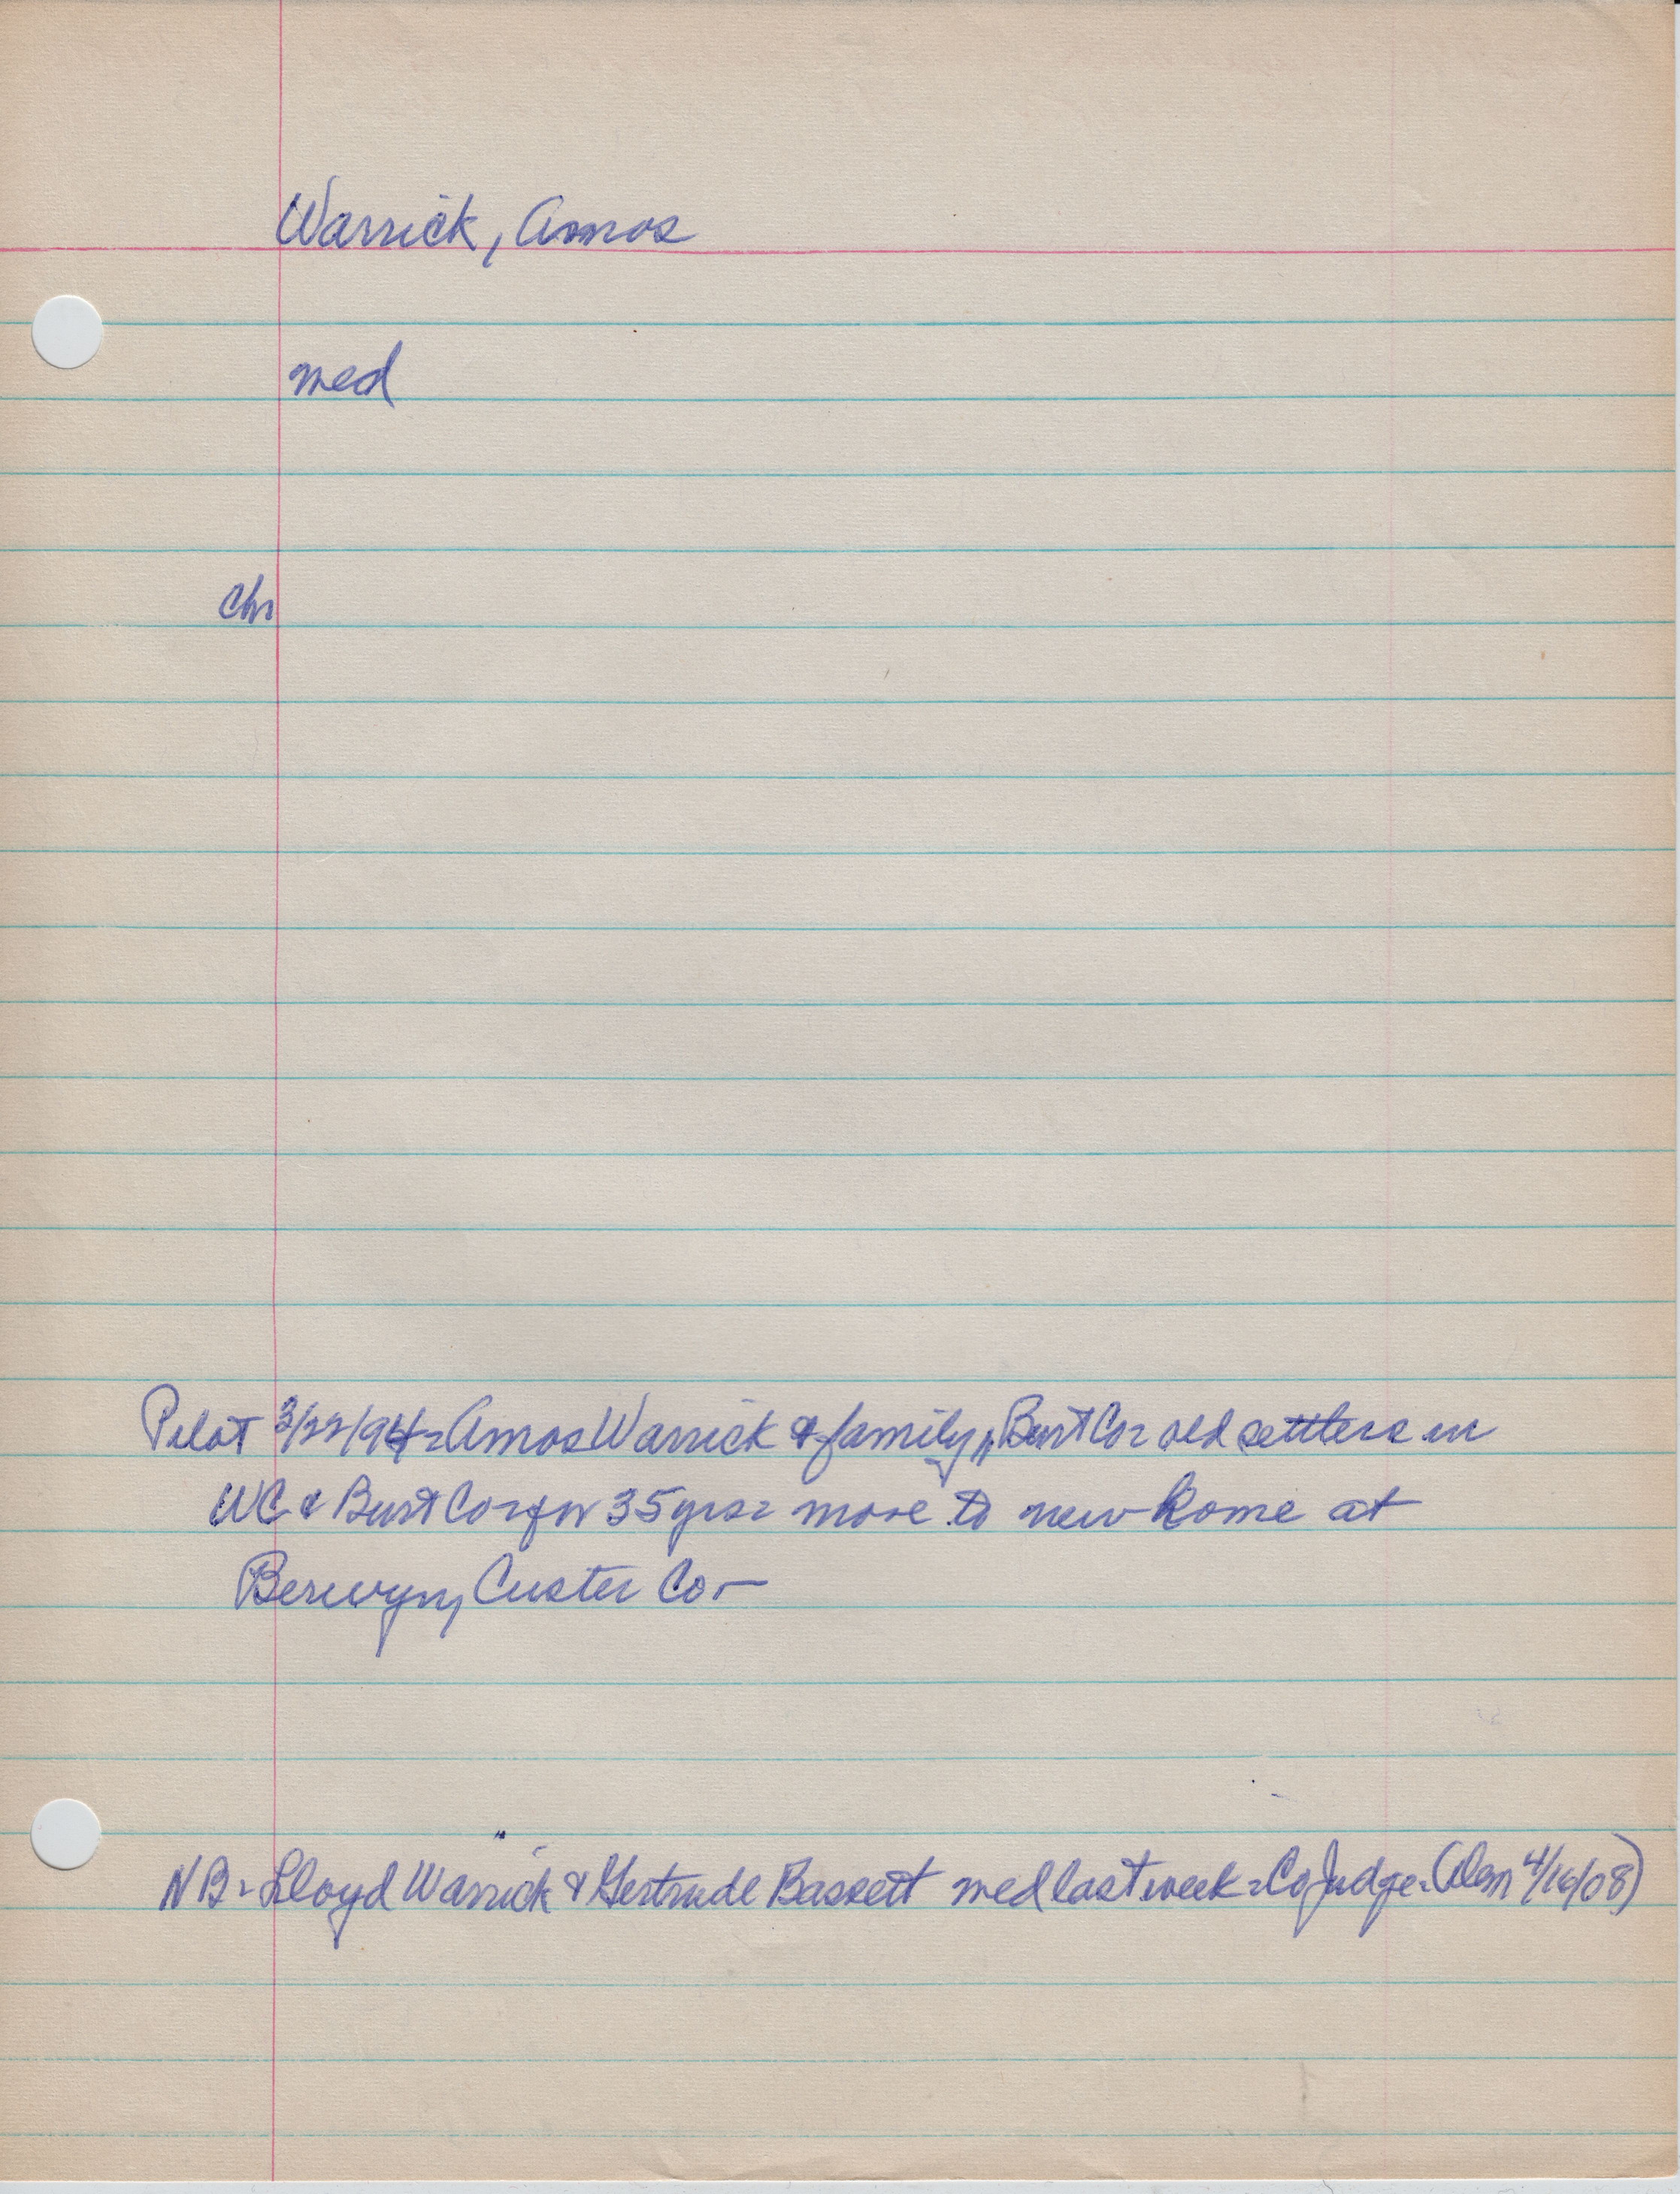 Warrick, Amos
med
Chr
Pilot 3/22/94 - Amos Warrick & family, Burt Co - old settlers in
WC & Burt Co - for 35 yrs - move to new home at
Berwyn, Custer Co -
NB - Lloyd Warrick & Gertrude Bassett med last week - Co Judge. (Dem 4/16/08)